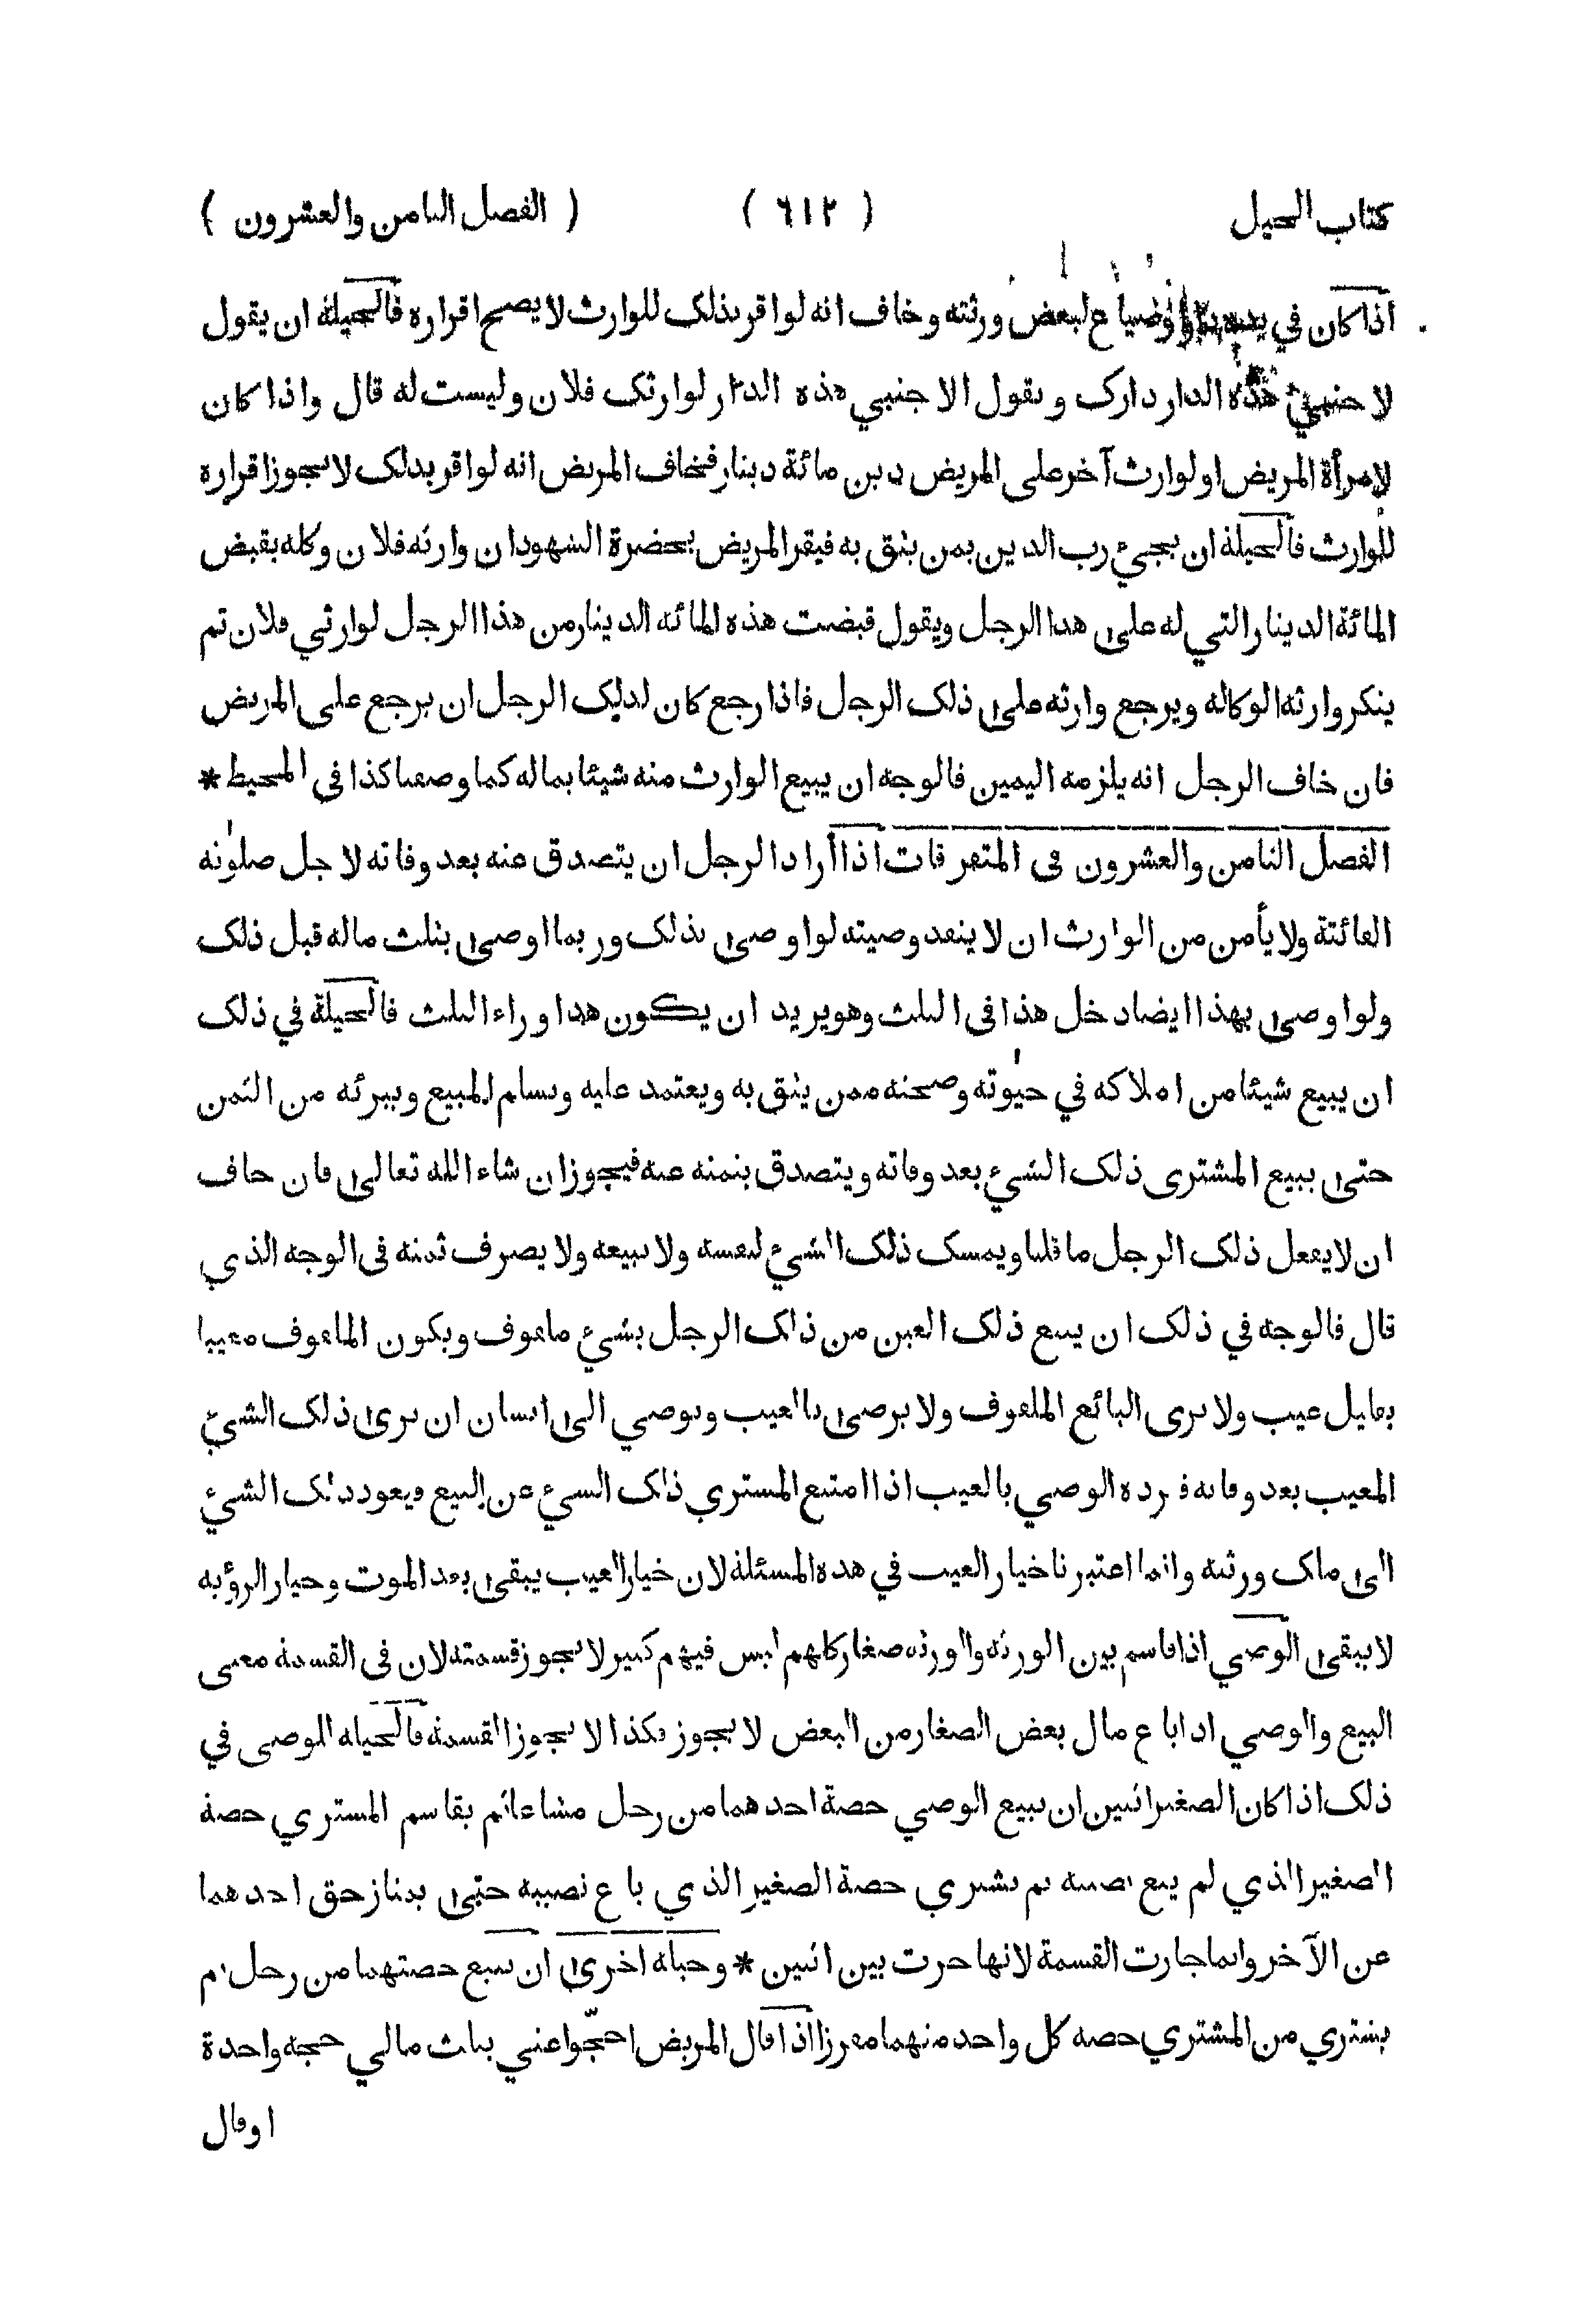 كتاب الحيل ( ٦١٢ ) ( الفصل الثامن والعشرون )
اذا كان في يديه دار او ضياع لبعض ورثته وخاف انه لو اقر بذلك للوارث لا يصح اقراره فالحيلة ان يقول
لاجنبي هذه الدار دارك ويقول الاجنبي هذه الدار لوارثك فلان وليست له قال واذا كان
لامرأة المريض او لوارث آخر على المريض دين مائة دينار فخاف المريض انه لو اقر بذلك لا يجوز اقراره
للوارث فالحيلة ان يجيء رب الدين بمن يثق به فيقر المريض بحضرة الشهود ان وارثه فلان وكله بقبض
المائة الدينار التي له على هذا الرجل ويقول قبضت هذه المائة الدينار من هذا الرجل لوارثي فلان ثم
ينكر وارثه الوكالة ويرجع وارثه على ذلك الرجل فاذا رجع كان لذلك الرجل ان يرجع على المريض
فان خاف الرجل انه يلزمه اليمين فالوجه ان يبيع الوارث منه شيئا بماله كما وصفنا كذا في المحيط *
الفصل الثامن والعشرون في المتفرقات اذا أراد الرجل ان يتصدق عنه بعد وفاته لاجل صلوته
الفائتة ولا يأمن من الوارث ان لا ينفذ وصيته لو اوصى بذلك وربما اوصى بثلث ماله قبل ذلك
ولو اوصى بهذا ايضا دخل هذا في الثلث وهو يريد ان يكون هذا وراء الثلث فالحيلة في ذلك
ان يبيع شيئا من املاكه في حيوته وصحته ممن يثق به ويعتمد عليه ويسلم المبيع ويبرئه من الثمن
حتى يبيع المشترى ذلك الشيء بعد وفاته ويتصدق بثمنه عنه فيجوز ان شاء الله تعالى فان خاف
ان لا يفعل ذلك الرجل ما قلنا ويمسك ذلك الشيء لنفسه ولا يبيعه ولا يصرف ثمنه في الوجه الذي
قال فالوجه في ذلك ان يبيع ذلك العين من ذلك الرجل بشيء ملفوف ويكون الملفوف معيبا
بقليل عيب ولا يرى البائع الملفوف ولا يرضى بالعيب ويوصي الى انسان ان يرى ذلك الشيء
المعيب بعد وفاته فيرده الوصي بالعيب اذا امتنع المشتري ذلك الشيء عن البيع فيعود ذلك الشيء
الى ملك ورثته وانما اعتبرنا خيار العيب في هذه المسئلة لان خيار العيب يبقى بعد الموت وخيار الرؤية
لا يبقى الوصي اذا قاسم بين الورثة والورثة صغار كلهم ليس فيهم كبير لا يجوز قسمته لان في القسمة معنى
البيع والوصي اذا باع مال بعض الصغار من البعض لا يجوز فكذا لا يجوز القسمة فالحيلة للوصي في
ذلك اذا كان الصغير اثنين ان يبيع الوصي حصة احدهما من رجل مشاعا ثم يقاسم المشتري حصة
الصغير الذي لم يبع نصيبه ثم يشتري حصة الصغير الذي باع نصيبه حتى يمتاز حق احدهما
عن الآخر وانما جازت القسمة لانها جرت بين اثنين * وحيلة اخرى ان يبيع حصتهما من رجل ثم
يشتري من المشتري حصة كل واحد منهما مفرزا اذا قال المريض احجّوا عني بثلث مالي حجة واحدة
او قال